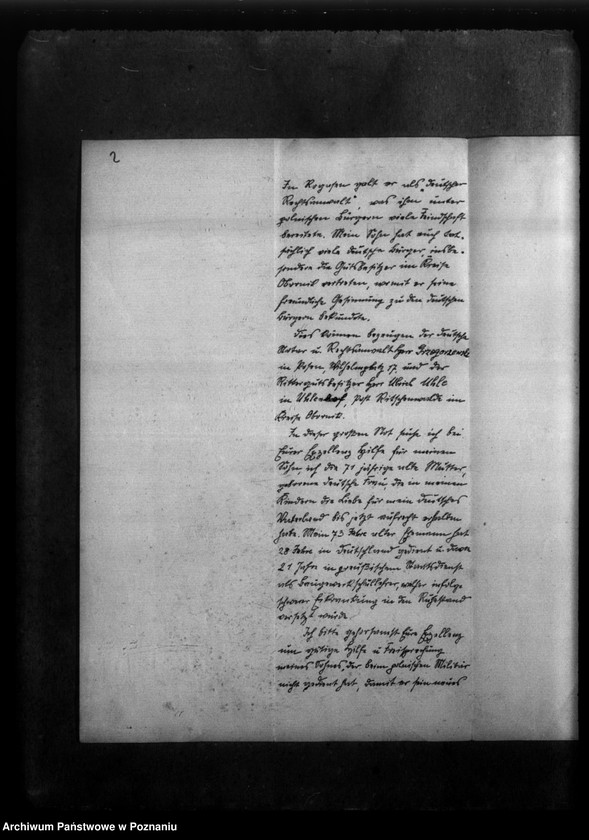 2
In Rogasen galt er als „deutscher
Rechtsanwalt“, was ihm unter
polnischen Bürgern viele Feindschaft
bereitete. Mein Sohn hat auch tat-
sächlich viele deutsche Bürger insbe-
sondere die Gutsbesitzer im Kreise
Obornik vertreten, womit er seine
freundliche Gesinnung zu den deutschen
Bürgern bekundete.
Dies können bezeugen der deutsche
Notar u. Rechtsanwalt Herr
in Posen, Wilhelmplatz 17, und der
Rittergutsbesitzer Herr Ulrich Uhle
in Uhlenhof, Post Ritschenwalde im
Kreise Obornik.
In dieser großen Not suche ich bei
Eurer Exzellenz Hilfe für meinen
Sohn, ich die 71 jährige alte Mutter,
geborene deutsche Frau, die in meinen
Kindern die Liebe für mein deutsches
Vaterland bis jetzt aufrecht erhalten
habe. Mein 73 Jahre alter Ehemann hat
28 Jahre in Deutschland gedient u. davon
21 Jahre in preußischem Staatsdienste
als Baugewerkschullehrer, woher infolge
schwerer Erkrankung in den Ruhestand
versetzt wurde.
Ich bitte gehorsamst Eure Exzellenz
um gütige Hilfe u. Freisprechung
meines Sohnes, der beim polnischen Militär
nicht gedient hat, damit er sein neues
Archiwum Państwowe w Poznaniu